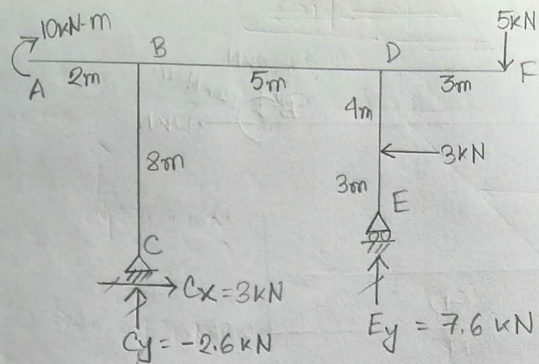 10kN-m
5kN
B
D
A
2m
5m
3m
F
4m
8m
3kN
3m
E
C
Cx = 3kN
Cy = -2.6 kN
Ey = 7.6 kN